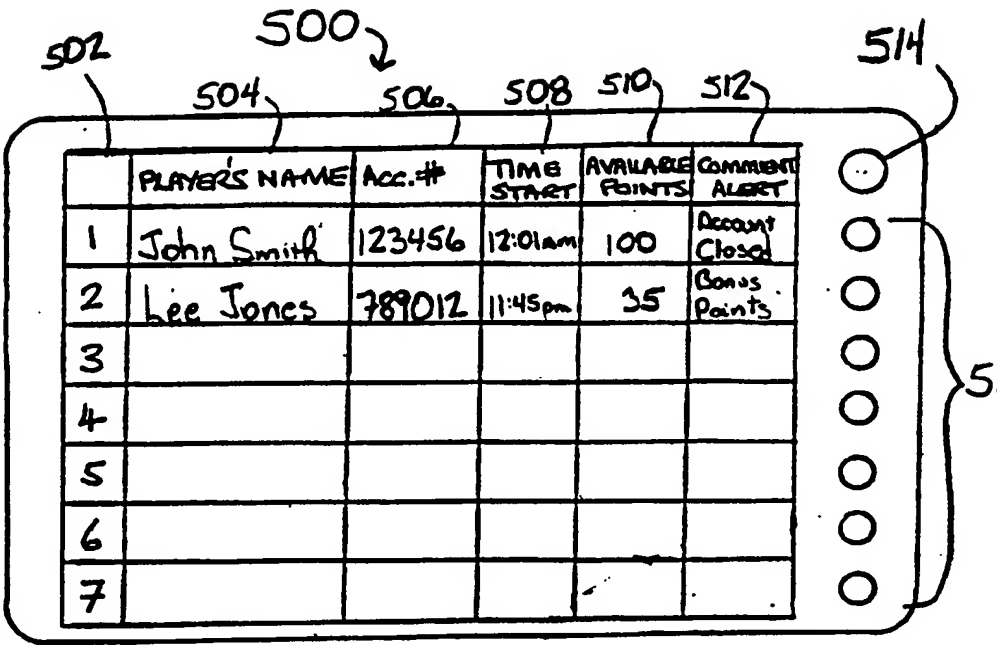 500
502
514
504 506 508 510 512
PLAYER'S NAME Acc.# TIME START AVAILABLE POINTS COMMENT ALERT
1 John Smith 123456 12:01am 100 Account Closed
2 Lee Jones 789012 11:45pm 35 Bonus Points
3
4
5
6
7